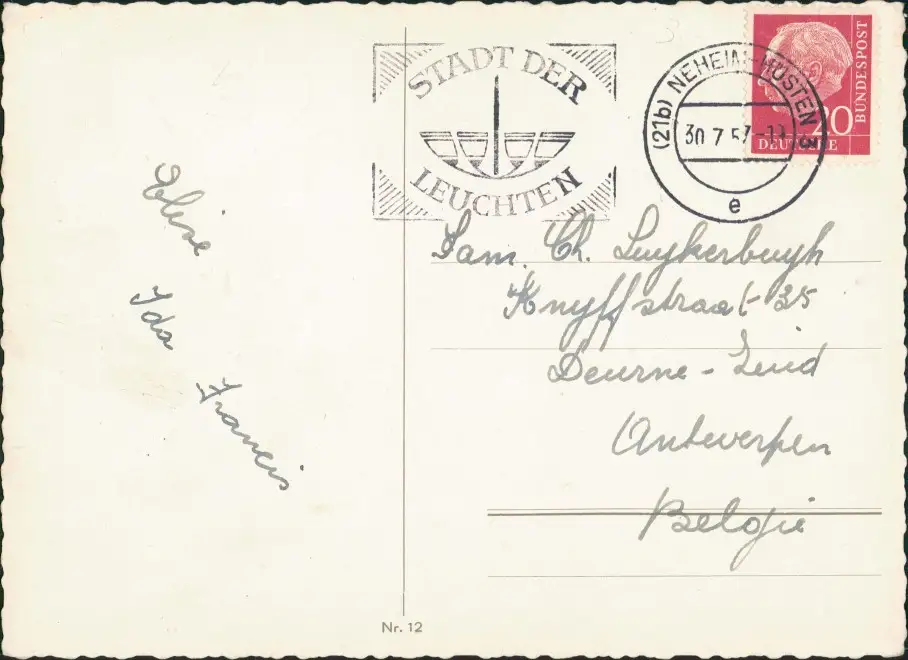 STADT DER
LEUCHTEN
(21b) NEHEIM-HÜSTEN 3
30.7.57
e
BUNDESPOST
20
DEUTSCHE
Elise
Ida
Francis
Fam. Ch. Luykerbuyk
Knyffstraat 35
Deurne-Zuid
Antwerpen
Belgie
Nr. 12